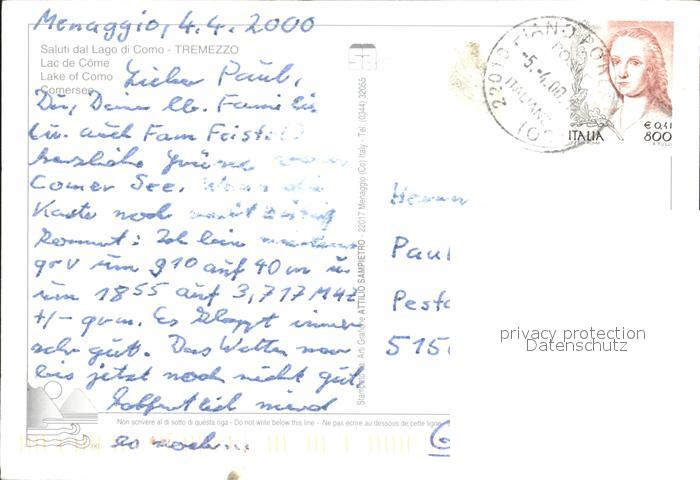 Menaggio, 4.4. 2000
Saluti dal Lago di Como - TREMEZZO
Lac de Côme
Lake of Como
Comersee
Lieber Paul,
Dir, Deiner lb. Familie
(u. auch Fam Feist
herzliche Grüsse vom
Comer See. Wenn die
Karte noch
kommt: Ich bin
QRV um 910 auf 40m u.
um 1855 auf 3,717 MHz
+/- qrm. Es klappt immer
sehr gut. Das Wetter war
bis jetzt noch nicht gut,
hoffentlich wird
es noch...
Non scrivere al di sotto di questa riga - Do not write below this line - Ne pas écrire au dessous de cette ligne
Arti Grafiche ATTILIO SAMPIETRO - 22017 Menaggio (Co) Italy - Tel. (0344) 32055
22010 PIANO PORL
-5.-4.00
ITALIANE
(CO)
ITALIA
€ 0,41
800
Herrn
Paul
Pesta
515
privacy protection
Datenschutz